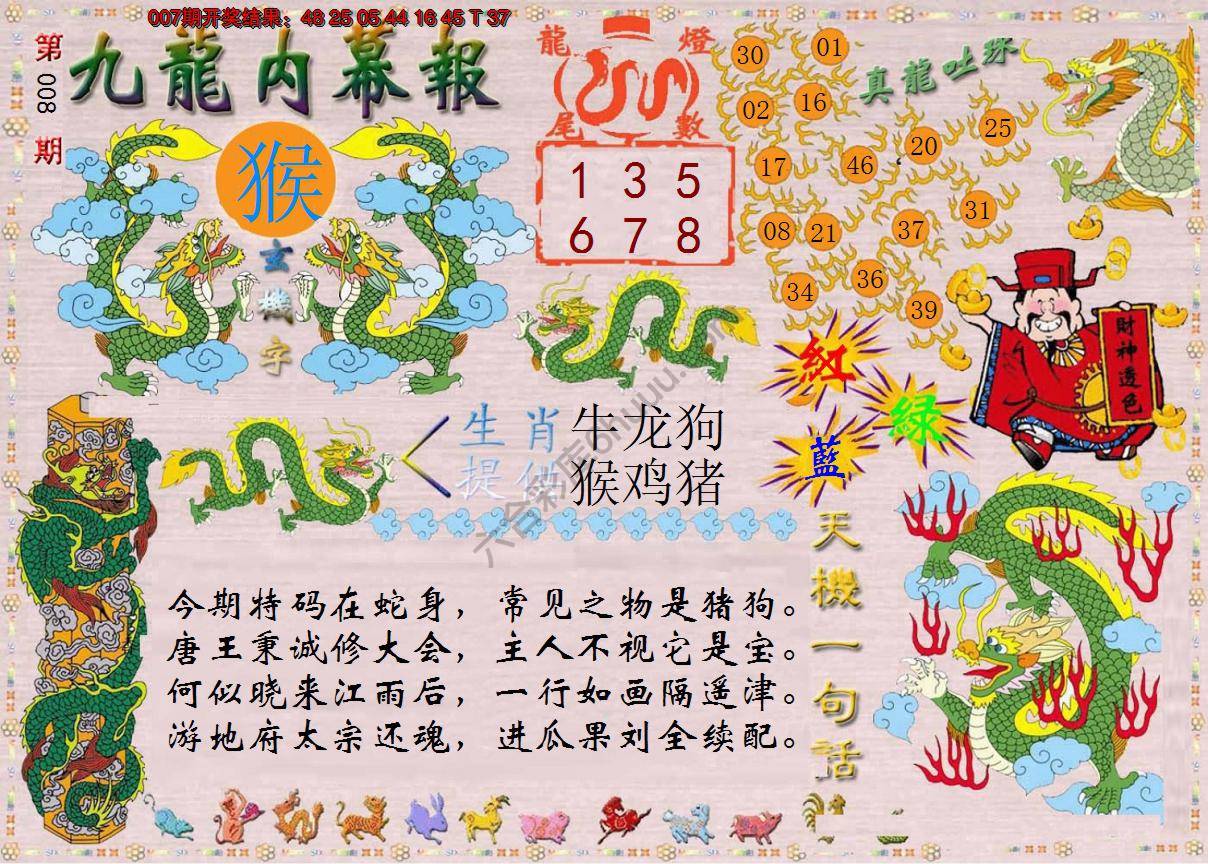 007期开奖结果：48 25 05 44 16 45 T 37
第008期
九龍内幕報
猴
玄機字
龍燈
尾數
1 3 5
6 7 8
真龍吐珠
30 01
02 16
17 46 20 25
08 21 37 31
34 36 39
財神透色
紅
綠
藍
生肖 牛龙狗
提供 猴鸡猪
天機一句話
今期特码在蛇身，常见之物是猪狗。
唐王秉诚修大会，主人不视它是宝。
何似晓来江雨后，一行如画隔遥津。
游地府太宗还魂，进瓜果刘全续配。